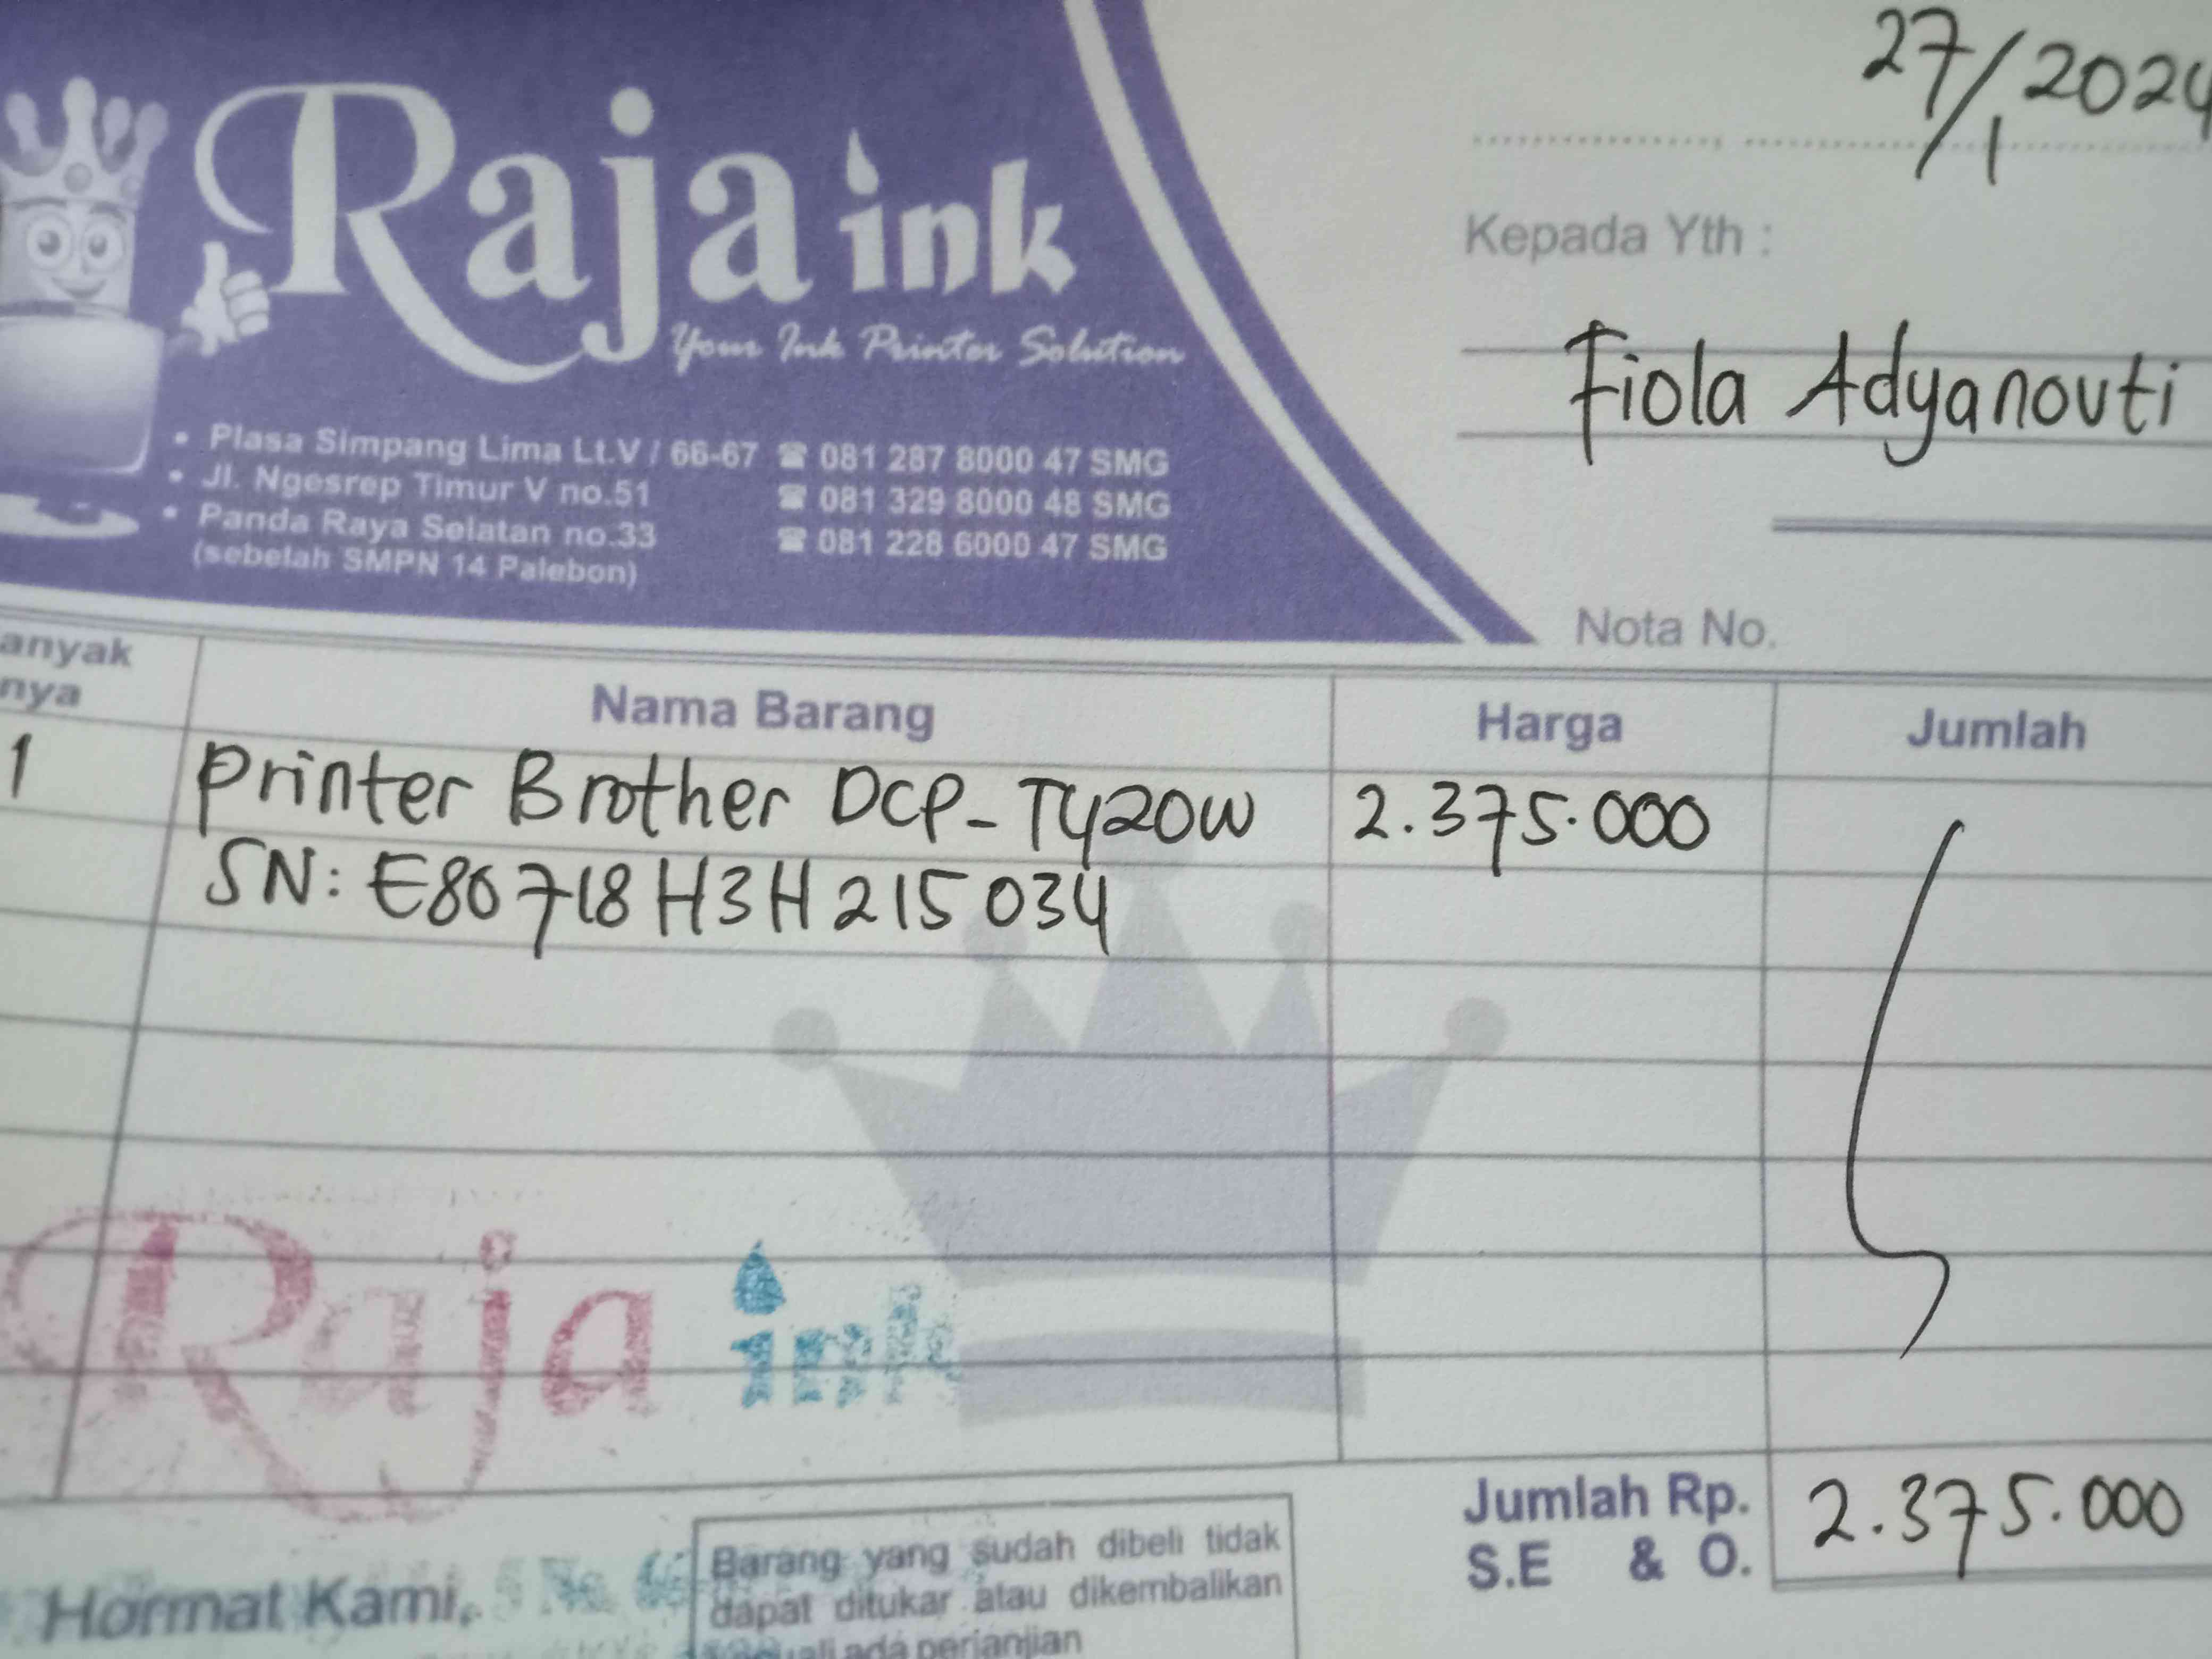 27/1 2024
Raja ink
Your Ink Printer Solution
• Plasa Simpang Lima Lt.V / 66-67 ☎ 081 287 8000 47 SMG
• Jl. Ngesrep Timur V no.51 ☎ 081 329 8000 48 SMG
• Panda Raya Selatan no.33 ☎ 081 228 6000 47 SMG
(sebelah SMPN 14 Palebon)
Kepada Yth :
Fiola Adyanovti
Nota No.
anyak
nya
Nama Barang
Harga
Jumlah
1 Printer Brother DCP-T420W 2.375.000
SN: E80718H3H215034
Raja ink
Jumlah Rp. 2.375.000
S.E & O.
Hormat Kami,
Barang yang sudah dibeli tidak
dapat ditukar atau dikembalikan
ada perjanjian